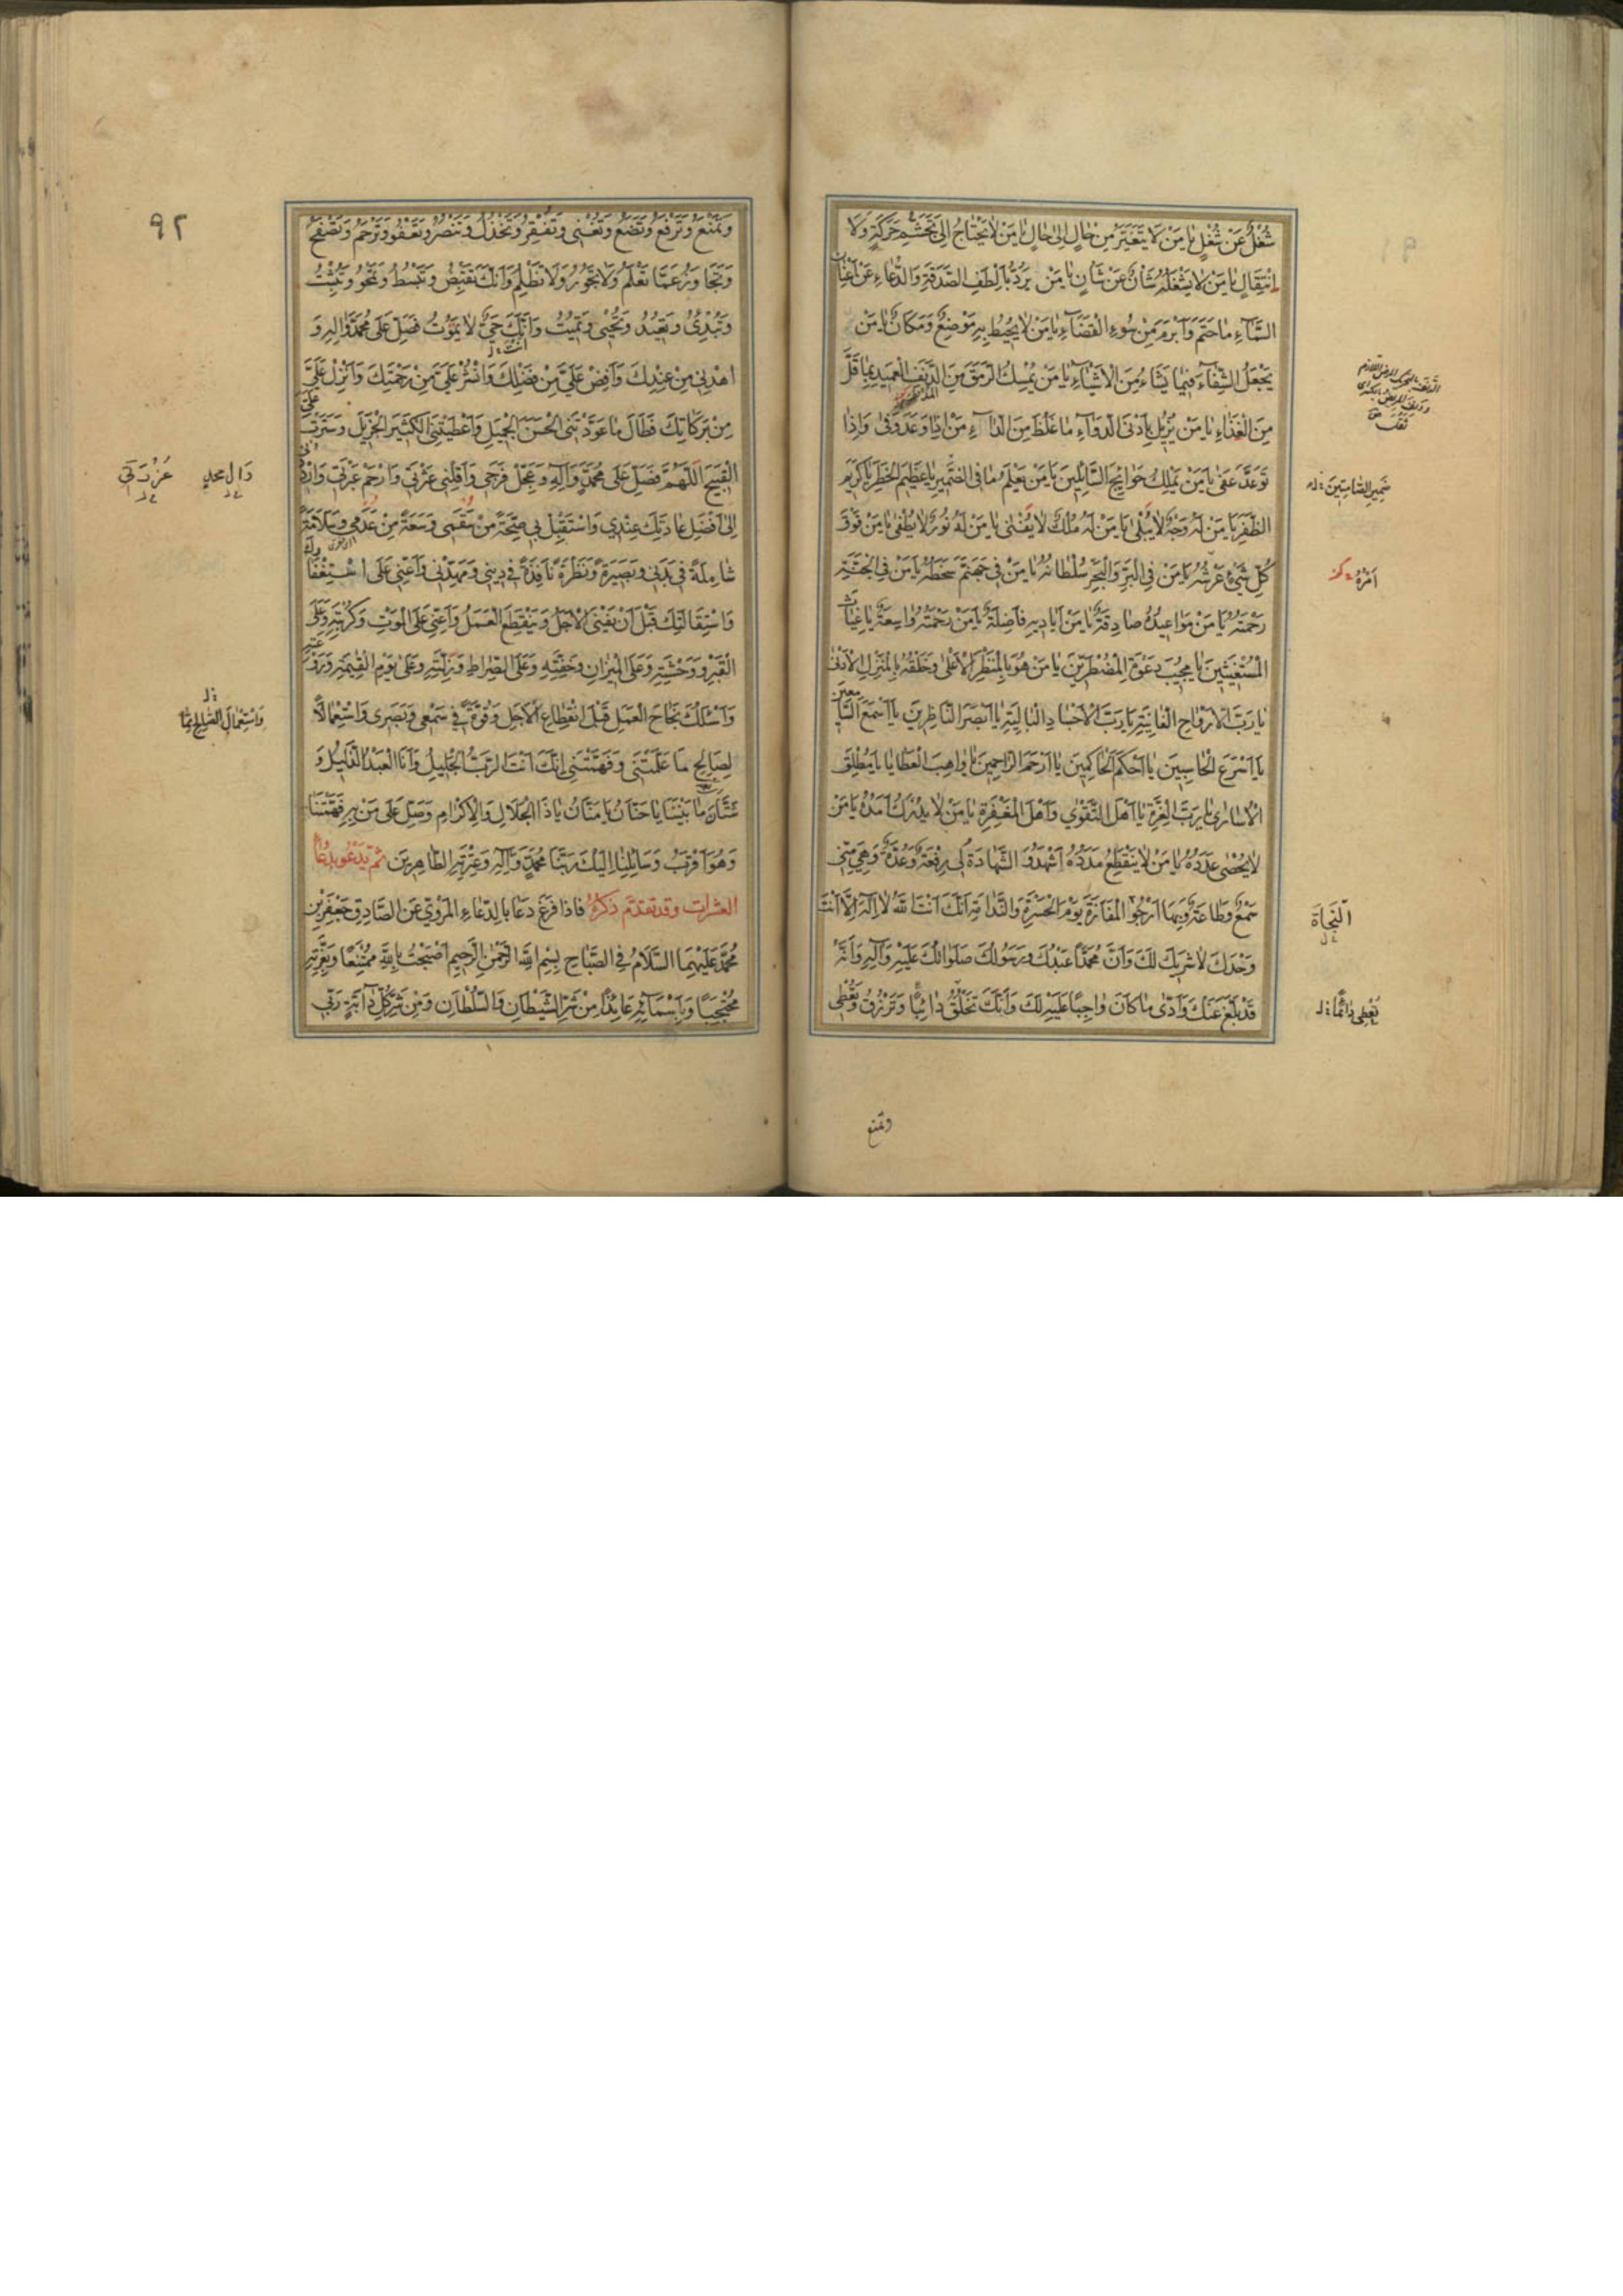 شُغْلٌ عَنْ شُغْلٍ يَا مَنْ لَا يَتَغَيَّرُ مِنْ حَالٍ إِلَى حَالٍ يَا مَنْ لَا يَحْتَاجُ إِلَى تَجَشُّمِ حَرَكَةٍ وَلَا
انْتِقَالٍ يَا مَنْ لَا يَشْغَلُهُ شَأْنٌ عَنْ شَأْنٍ يَا مَنْ يَرُدُّ بِأَلْطَفِ الصَّدَقَةِ وَالدُّعَاءِ عَنْ أَعْنَانِ
السَّمَآءِ مَا حَتَمَ وَأَبْرَمَ مِنْ سُوءِ الْقَضَآءِ يَا مَنْ لَا يُحِيطُ بِهِ مَوْضِعٌ وَمَكَانٌ يَا مَنْ
يَجْعَلُ الشِّفَآءَ فِيمَا يَشَاءُ مِنَ الْأَشْيَآءِ يَا مَنْ يُمْسِكُ الرَّمَقَ مِنَ الدَّنِفِ الْعَمِيدِ بِمَا قَلَّ
مِنَ الْغِذَاءِ يَا مَنْ يُزِيلُ بِأَدْنَى الدَّوَآءِ مَا غَلُظَ مِنَ الدَّآءِ مَنْ إِذَا وَعَدَ وَفَى وَإِذَا
تَوَعَّدَ عَفَى يَا مَنْ يَمْلِكُ حَوَائِجَ السَّائِلِينَ يَا مَنْ يَعْلَمُ مَا فِى الضَّمِيرِ يَا عَظِيمَ الْخَطَرِ يَا كَرِيمَ
الظَّفَرِ يَا مَنْ لَهُ وَجْهٌ لَا يَبْلَى يَا مَنْ لَهُ مُلْكٌ لَا يَفْنَى يَا مَنْ لَهُ نُورٌ لَا يُطْفَى يَا مَنْ فَوْقَ
كُلِّ شَيْءٍ عَرْشُهُ يَا مَنْ فِي الْبَرِّ وَالْبَحْرِ سُلْطَانُهُ يَا مَنْ فِى جَهَنَّمَ سَخَطُهُ يَا مَنْ فِي الْجَنَّةِ
رَحْمَتُهُ يَا مَنْ مَوَاعِيدُهُ صَادِقَةٌ يَا مَنْ أَيَادِيهِ فَاضِلَةٌ يَا مَنْ رَحْمَتُهُ وَاسِعَةٌ يَا غِيَاثَ
الْمُسْتَغِيثِينَ يَا مُجِيبَ دَعْوَةِ الْمُضْطَرِّينَ يَا مَنْ هُوَ بِالْمَنْظَرِ الْأَعْلَى وَخَلْقُهُ بِالْمَنْزِلِ الْأَدْنَى
يَا رَبَّ الْأَرْوَاحِ الْفَانِيَةِ يَا رَبَّ الْأَجْسَادِ الْبَالِيَةِ يَا أَبْصَرَ النَّاظِرِينَ يَا أَسْمَعَ السَّامِعِينَ
يَا أَسْرَعَ الْحَاسِبِينَ يَا أَحْكَمَ الْحَاكِمِينَ يَا أَرْحَمَ الرَّاحِمِينَ يَا وَاهِبَ الْعَطَايَا يَا مُطْلِقَ
الْأُسَارَى يَا رَبَّ الْعِزَّةِ يَا أَهْلَ التَّقْوَى وَأَهْلَ الْمَغْفِرَةِ يَا مَنْ لَا يُدْرَكُ أَمَدُهُ يَا مَنْ
لَا يُحْصَى عَدَدُهُ يَا مَنْ لَا يَنْقَطِعُ مَدَدُهُ أَشْهَدُ وَ الشَّهَادَةُ لِى رِفْعَةٌ وَعُدَّةٌ وَهِيَ مِنِّى
سَمْعٌ وَطَاعَةٌ وَبِهَا أَرْجُو الْمَفَازَةَ يَوْمَ الْحَسْرَةِ وَالنَّدَامَةِ إِنَّكَ أَنْتَ اللَّهُ لَا إِلَهَ إِلَّا أَنْتَ
وَحْدَكَ لَا شَرِيكَ لَكَ وَأَنَّ مُحَمَّدًا عَبْدُكَ وَرَسُولُكَ صَلَوَاتُكَ عَلَيْهِ وَآلِهِ وَأَنَّهُ
قَدْ بَلَّغَ عَنْكَ وَأَدَّى مَا كَانَ وَاجِبًا عَلَيْهِ لَكَ وَأَنَّكَ تَخْلُقُ دَائِبًا وَتَرْزُقُ وَتُعْطِى
ضَمِيرَ الصَّامِتِينَ
أَمْرُهُ
النَّجَاةَ
تُعْطِى دَائِمًا
وتمنع
٩٢
وَتَمْنَعُ وَتَرْفَعُ وَتَضَعُ وَتُغْنِى وَتُفْقِرُ وَتَخْذُلُ وَتَنْصُرُ وَتَعْفُو وَتَرْحَمُ وَتَصْفَحُ
وَتَجَاوَزُ عَمَّا تَعْلَمُ وَلَا تَجُورُ وَلَا تَظْلِمُ وَأَنَّكَ تَقْبِضُ وَتَبْسُطُ وَتَمْحُو وَتُثْبِتُ
وَتُبْدِئُ وَتُعِيدُ وَتُحْيِى وَتُمِيتُ وَأَنَّكَ حَيٌّ لَا يَمُوتُ فَصَلِّ عَلَى مُحَمَّدٍ وَآلِهِ وَ
اهْدِنِى مِنْ عِنْدِكَ وَأَفِضْ عَلَيَّ مِنْ فَضْلِكَ وَانْشُرْ عَلَيَّ مِنْ رَحْمَتِكَ وَأَنْزِلْ عَلَيَّ
مِنْ بَرَكَاتِكَ فَطَالَ مَا عَوَّدْتَنِى الْحَسَنَ الْجَمِيلَ وَأَعْطَيْتَنِى الْكَثِيرَ الْجَزِيلَ وَسَتَرْتَ عَلَيَّ
الْقَبِيحَ اللَّهُمَّ فَصَلِّ عَلَى مُحَمَّدٍ وَآلِهِ وَعَجِّلْ فَرَجِى وَأَقِلْنِى عَثْرَتِى وَارْحَمْ عَبْرَتِى وَارْدُدْنِى
إِلَى أَفْضَلِ عَادَتِكَ عِنْدِى وَاسْتَقْبِلْ بِى صِحَّةً مِنْ سُقْمِى وَسَعَةً مِنْ عَدَمِى وَسَلَامَةً
شَامِلَةً فِى بَدَنِى وَبَصِيرَةً وَنَظْرَةً نَافِذَةً فِى دِينِى وَمَهِّدْنِى وَأَعِنِّى عَلَى اسْتِغْفَارِكَ
وَاسْتِقَالَتِكَ قَبْلَ أَنْ يَفْنَى الْأَجَلُ وَيَنْقَطِعَ الْعَمَلُ وَأَعِنِّى عَلَى الْمَوْتِ وَكُرْبَتِهِ وَعَلَى
الْقَبْرِ وَوَحْشَتِهِ وَعَلَى الْمِيزَانِ وَخِفَّتِهِ وَعَلَى الصِّرَاطِ وَزَلَّتِهِ وَعَلَى يَوْمِ الْقِيمَةِ وَرَوْعَتِهِ
وَأَسْئَلُكَ نَجَاحَ الْعَمَلِ قَبْلَ انْقِطَاعِ الْأَجَلِ وَقُوَّةً فِى سَمْعِى وَبَصَرِى وَاسْتِعْمَالًا
لِصَالِحِ مَا عَلَّمْتَنِى وَفَهَّمْتَنِى إِنَّكَ أَنْتَ الرَّبُّ الْجَلِيلُ وَأَنَا الْعَبْدُ الذَّلِيلُ وَ
شَتَّانَ مَا بَيْنَنَا يَا حَنَّانُ يَا مَنَّانُ يَا ذَا الْجَلَالِ وَالْإِكْرَامِ وَصَلِّ عَلَى مَنْ بِهِ فَهَّمْتَنَا
وَهُوَ أَقْرَبُ وَسَائِلِنَا إِلَيْكَ رَبَّنَا مُحَمَّدٍ وَآلِهِ وَعِتْرَتِهِ الطَّاهِرِينَ ثُمَّ يَدْعُو بِدُعَاءِ
العشرات وقد تقدّم ذكره فَاذا فرغ دَعَا بِالدُّعَاءِ الْمَرْوِيِّ عَنِ الصَّادِقِ جَعْفَرِ بْنِ
مُحَمَّدٍ عَلَيْهِمَا السَّلَامُ فِى الصَّبَاحِ بِسْمِ اللَّهِ الرَّحْمَنِ الرَّحِيمِ أَصْبَحْتُ بِاللَّهِ مُمْتَنِعًا وَبِعِزَّتِهِ
مُحْتَجِبًا وَبِأَسْمَآئِهِ عَائِذًا مِنْ شَرِّ الشَّيْطَانِ وَالسُّلْطَانِ وَمِنْ شَرِّ كُلِّ دَآبَّةٍ رَبِّى